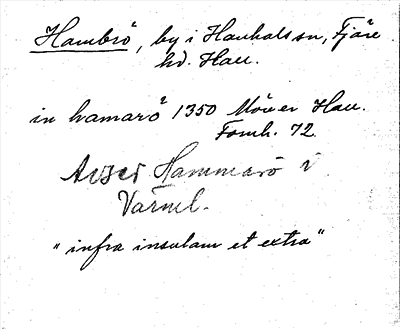 Hambrö, by i Hanhals sn, Fjäre
hd. Hall.
in hamarö 1350 Möller Hall.
Fornh. 72
Avser Hammarö i
Värml.
"infra insulam et extra"